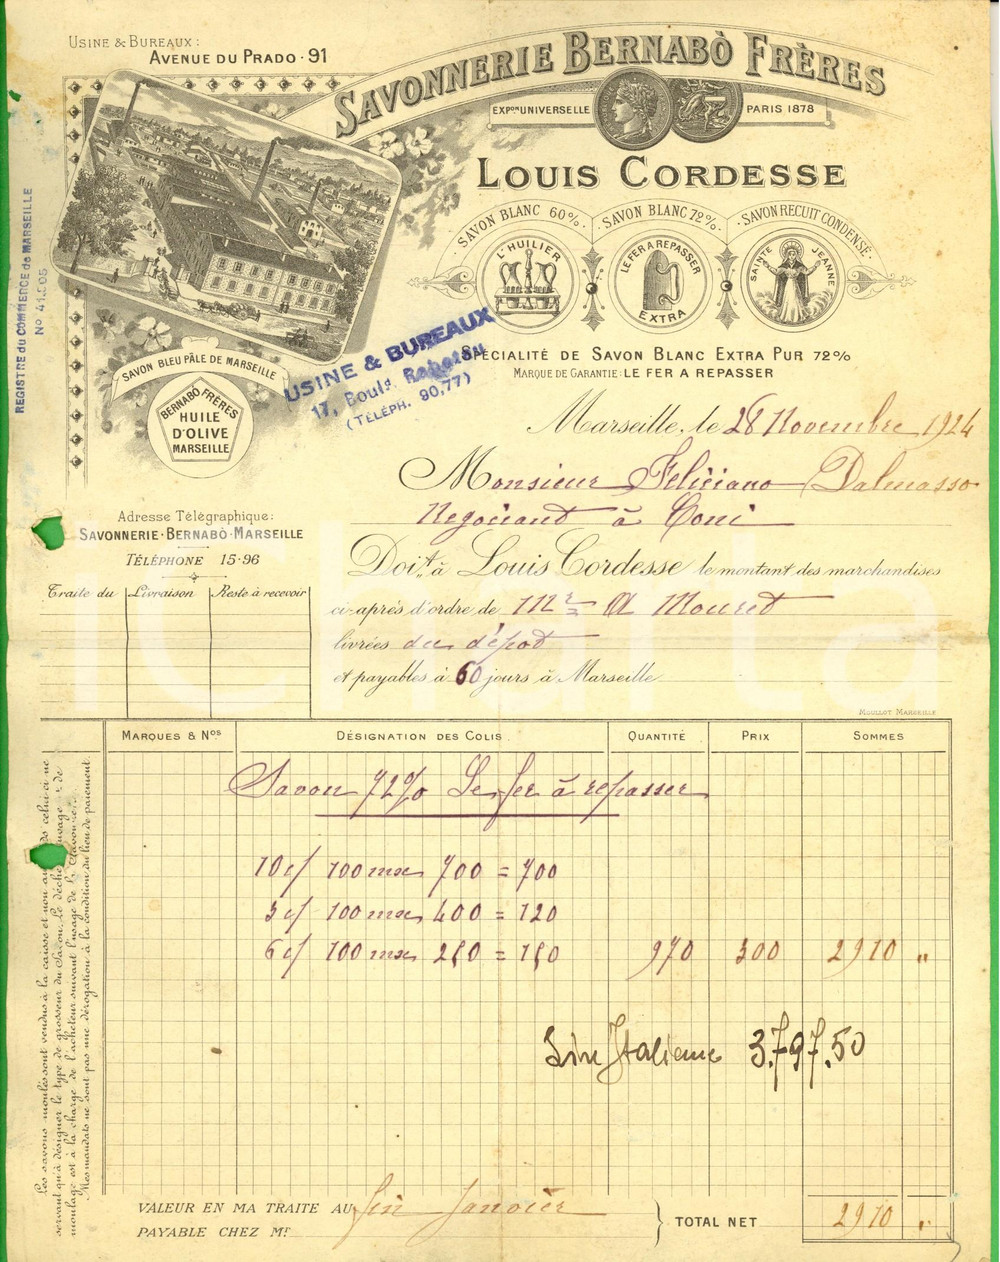 USINE & BUREAUX:
AVENUE DU PRADO · 91
SAVONNERIE BERNABÒ FRÈRES
EXPON UNIVERSELLE PARIS 1878
LOUIS CORDESSE
SAVON BLANC 60% SAVON BLANC 72% SAVON RECUIT CONDENSÉ
L'HUILIER
LE FER A REPASSER
EXTRA
SAINTE JEANNE
SPÉCIALITÉ DE SAVON BLANC EXTRA PUR 72%
MARQUE DE GARANTIE: LE FER A REPASSER
REGISTRE du COMMERCE de MARSEILLE
No
SAVON BLEU PÂLE DE MARSEILLE
BERNABÒ FRÈRES
HUILE
D'OLIVE
MARSEILLE
USINE & BUREAUX
17, Bould.
(TÉLÉPH. 90,77)
Marseille, le 28 Novembre 1924
Monsieur Feliciano Dalmasso
Negociant à Coni
Adresse Télégraphique:
SAVONNERIE · BERNABÒ · MARSEILLE
TÉLÉPHONE 15·96
Traite du Livraison Reste à recevoir
Doit à Louis Cordesse le montant des marchandises
ci-après d'ordre de Mr A Mouret
livrées au dépot
et payables à 60 jours à Marseille
MOULLOT MARSEILLE
MARQUES & NOS DÉSIGNATION DES COLIS QUANTITÉ PRIX SOMMES
Savon 72% Le fer à repasser
10 c/ 100 mx 700 = 700
3 c/ 100 mx 400 = 120
6 c/ 100 mx 250 = 150 970 300 2910 "
Lire Italienne 3.797.50
Les savons moulés sont vendus à la caisse et non au celui-ci ne
servant qu'à désigner le type de grosseur du Savon. Le déchet
moulage est à la charge de l'acheteur suivant l'usage de la
Mes mandats ne sont pas une dérogation à la condition du lieu de paiement.
VALEUR EN MA TRAITE AU fin Janvier
PAYABLE CHEZ Mr
TOTAL NET 2910 "